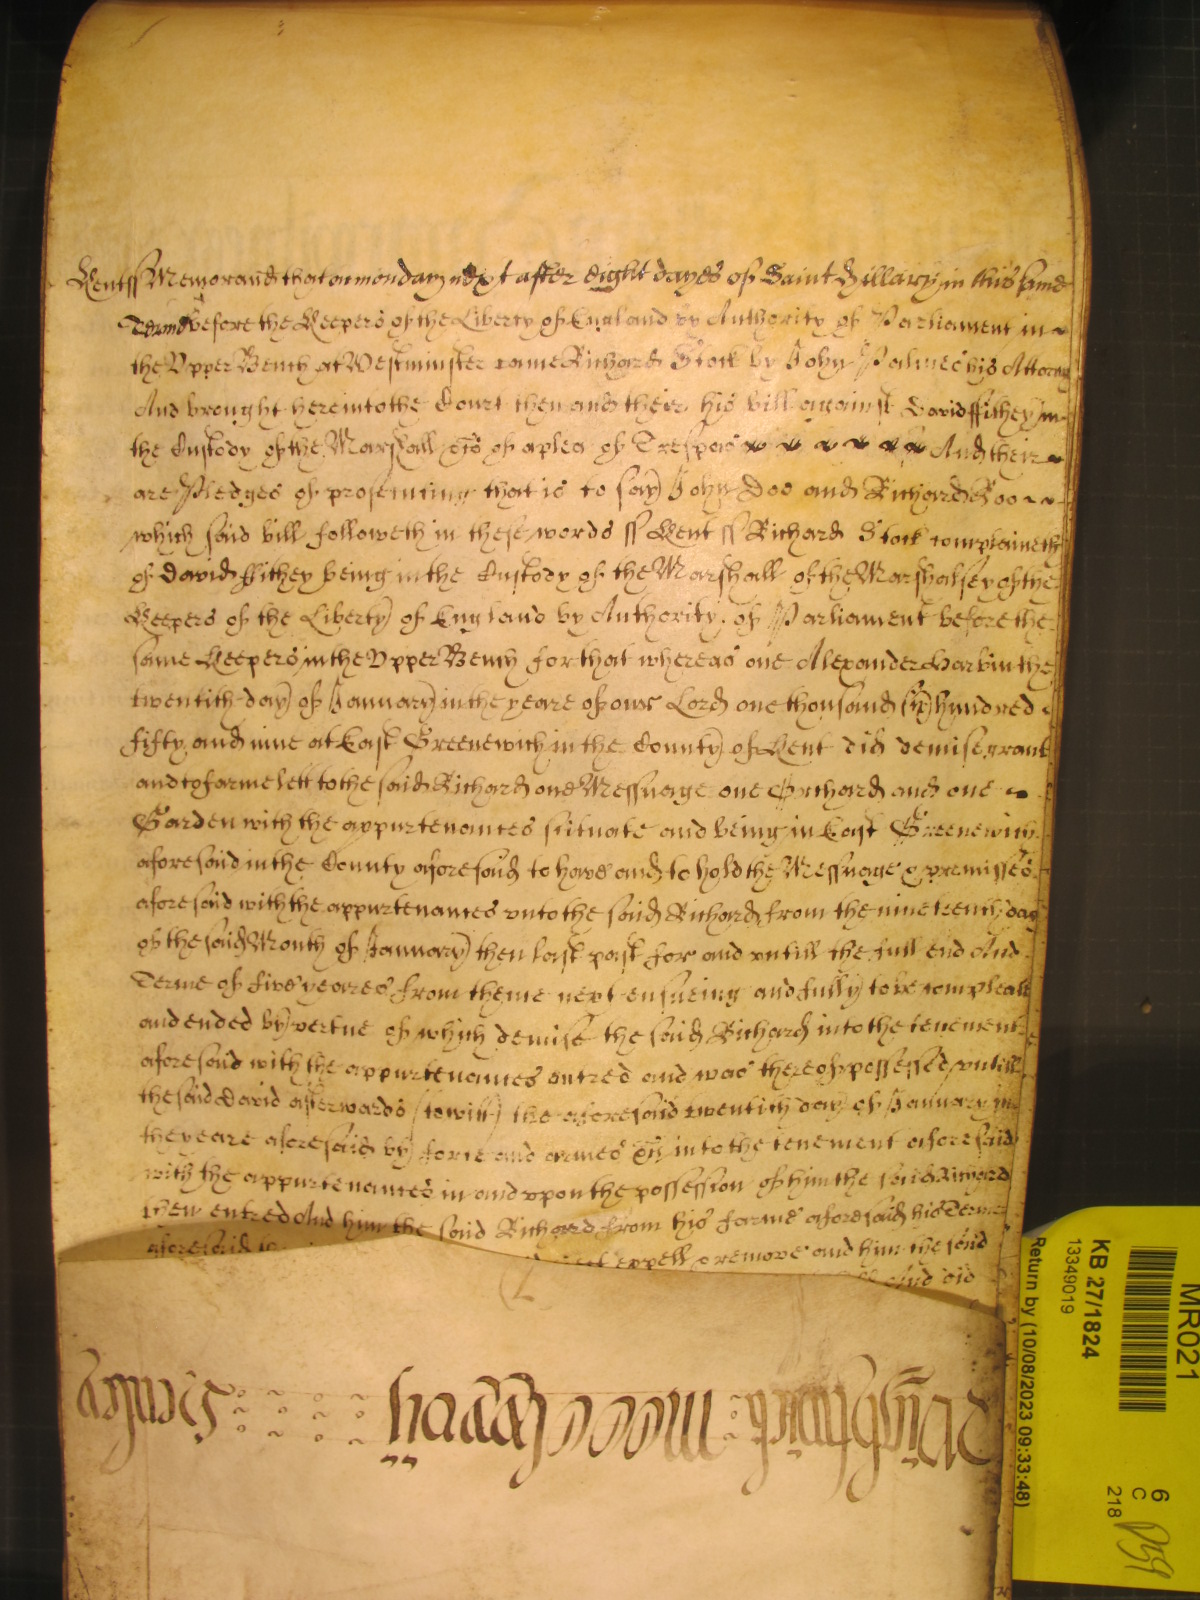 Kent ss Memorand that on monday next after eight dayes of Saint Hillary in this same
Terme before the Keepers of the Liberty of England by Authority of Parliament in
the Upper Bench at Westminster came Richard Stock by John Palmer his Attorney
And brought here into the Court then and their his bill against David ffithey in
the Custody of the Marshall &c of a plea of Trespas And their
are Pledges of prosecuting that is to say John Doo and Richard Roo
which said bill followeth in these words ss Kent ss Richard Stock complaineth
of David ffithey being in the Custody of the Marshall of the Marshalsey of the
Keepers of the Liberty of England by Authority of Parliament before the
same Keepers in the Upper Bench for that whereas one Alexander the
twentith day of January in the yeare of our Lord one thousand six hundred
fifty and nine at East Greenewich in the County of Kent did demise grant
and to farme lett to the said Richard one Messuage one Orchard and one
Garden with the appurtenances scituate and being in East Greenewich
aforesaid in the County aforesaid to have and to hold the Messuage & premisses
aforesaid with the appurtenances unto the said Richard from the nineteenth day
of the said Month of January then last past for and untill the full end And
Terme of five yeares from thence next ensueing and fully to be compleate
and ended by vertue of which demise the said Richard into the tenement
aforesaid with the appurtenances entred and was thereof possessed untill
the said David afterwards (to witt) the aforesaid twentith day of January in
the yeare aforesaid by force and armes &c into the tenement aforesaid
with the appurtenances in and upon the possession of him the said Richard
then entred And him the said Richard from his farme aforesaid his Terme
aforesaid expell & remove and him the said
and did
MR021
KB 27/1824
13349019
Return by (10/08/2023 09:33:48)
6
C
218